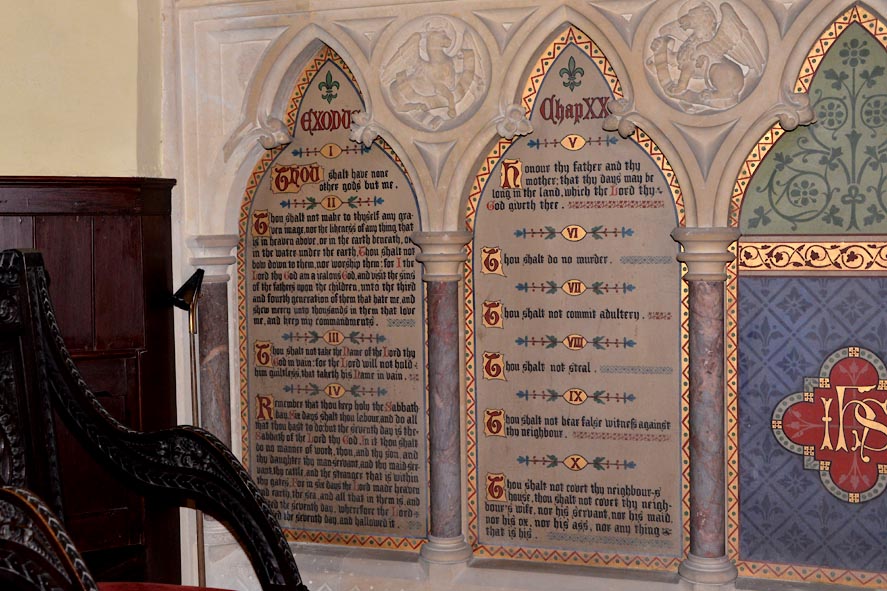 EXODUS
I
Thou shalt have none
other gods but me.
II
Thou shalt not make to thyself any gra-
ven image, nor the likeness of any thing that
is in heaven above, or in the earth beneath, or
in the water under the earth. Thou shalt not
bow down to them, nor worship them: for I the
Lord thy God am a jealous God, and visit the sins
of the fathers upon the children, unto the third
and fourth generation of them that hate me, and
shew mercy unto thousands in them that love
me, and keep my commandments.
III
Thou shalt not take the Name of the Lord thy
God in vain: for the Lord will not hold
him guiltless, that taketh his Name in vain.
IV
Remember that thou keep holy the Sabbath
day. Six days shalt thou labour, and do all
that thou hast to do: but the seventh day is the
Sabbath of the Lord thy God. In it thou shalt
do no manner of work, thou, and thy son, and
thy daughter, thy man-servant, and thy maid-ser-
vant, thy cattle, and the stranger that is within
thy gates. For in six days the Lord made heaven
and earth, the sea, and all that in them is, and
rested the seventh day, wherefore the Lord
the seventh day, and hallowed it.
Chap XX
V
Honour thy father and thy
mother; that thy days may be
long in the land, which the Lord thy
God giveth thee.
VI
Thou shalt do no murder.
VII
Thou shalt not commit adultery.
VIII
Thou shalt not steal.
IX
Thou shalt not bear false witness against
thy neighbour.
X
Thou shalt not covet thy neighbour's
house, thou shalt not covet thy neigh-
bour's wife, nor his servant, nor his maid,
nor his ox, nor his ass, nor any thing
that is his.
IHS